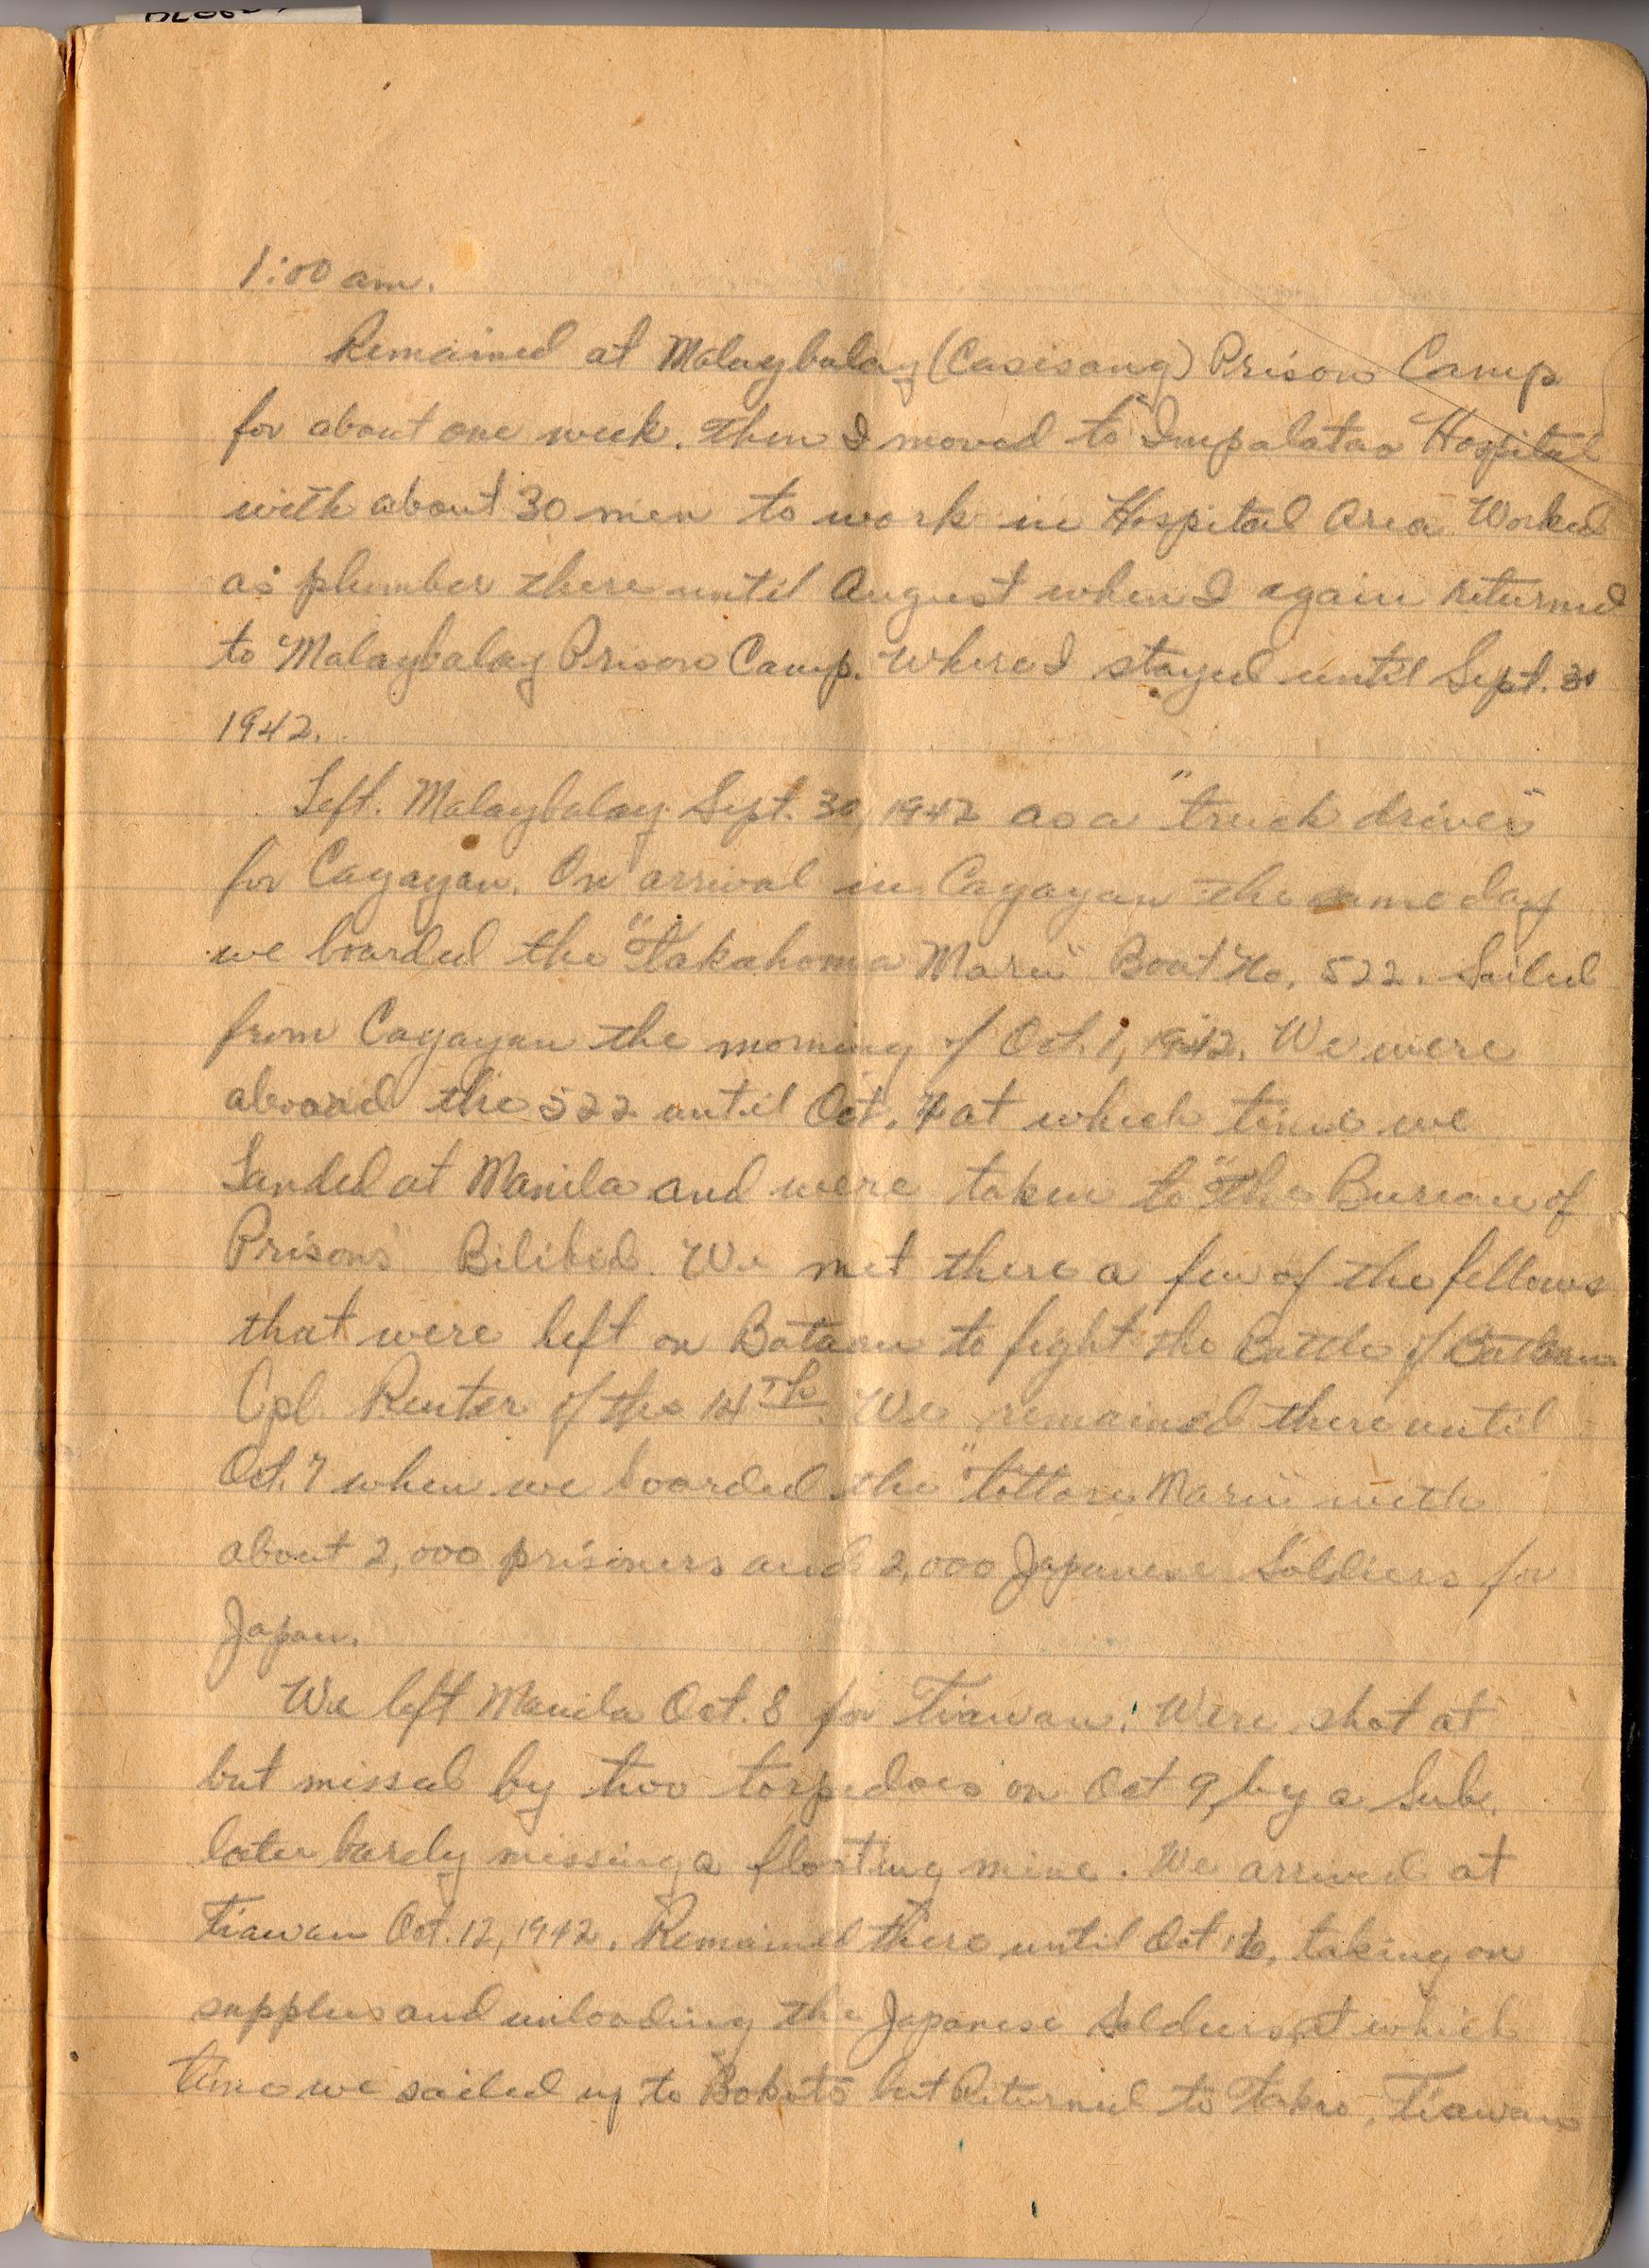 1:00 am.
Remained at Malaybalay (Casisang) Prison Camp
for about one week. Then I moved to "Impalatao Hospital
with about 30 men to work in Hospital Area. Worked
as plumber there until August when I again returned
to Malaybalay Prison Camp. Where I stayed until Sept. 30
1942.
Left. Malaybalay Sept. 30, 1942 as a "truck driver"
for Cagayan. On arrival in Cagayan the same day
we boarded the "Takahoma Maru" Boat No. 522. Sailed
from Cagayan the morning of Oct. 1, 1942. We were
aboard the 522 until Oct. at which time we
Landed at Manila and were taken to "The Bureau of
Prisons" Bilibid. We met there a few of the fellows
that were left on Bataan to fight the Battle of Bataan
Cpl. Reuter of the 14th. We remained there until
Oct. 7 when we boarded the "Tottori Maru" with
about 2,000 prisoners and 2,000 Japanese Soldiers for
Japan.
We left Manila Oct. 8 for Tiawan. Were shot at
but missed by two torpedoes on Oct 9, by a Sub.
later barely missing a floating mine. We arrived at
Tiawan Oct. 12, 1942. Remained there until Oct 16, taking on
supplies and unloading the Japanese Soldiers, at which
time we sailed up to Bokoto but Returned to Takao, Tiawan